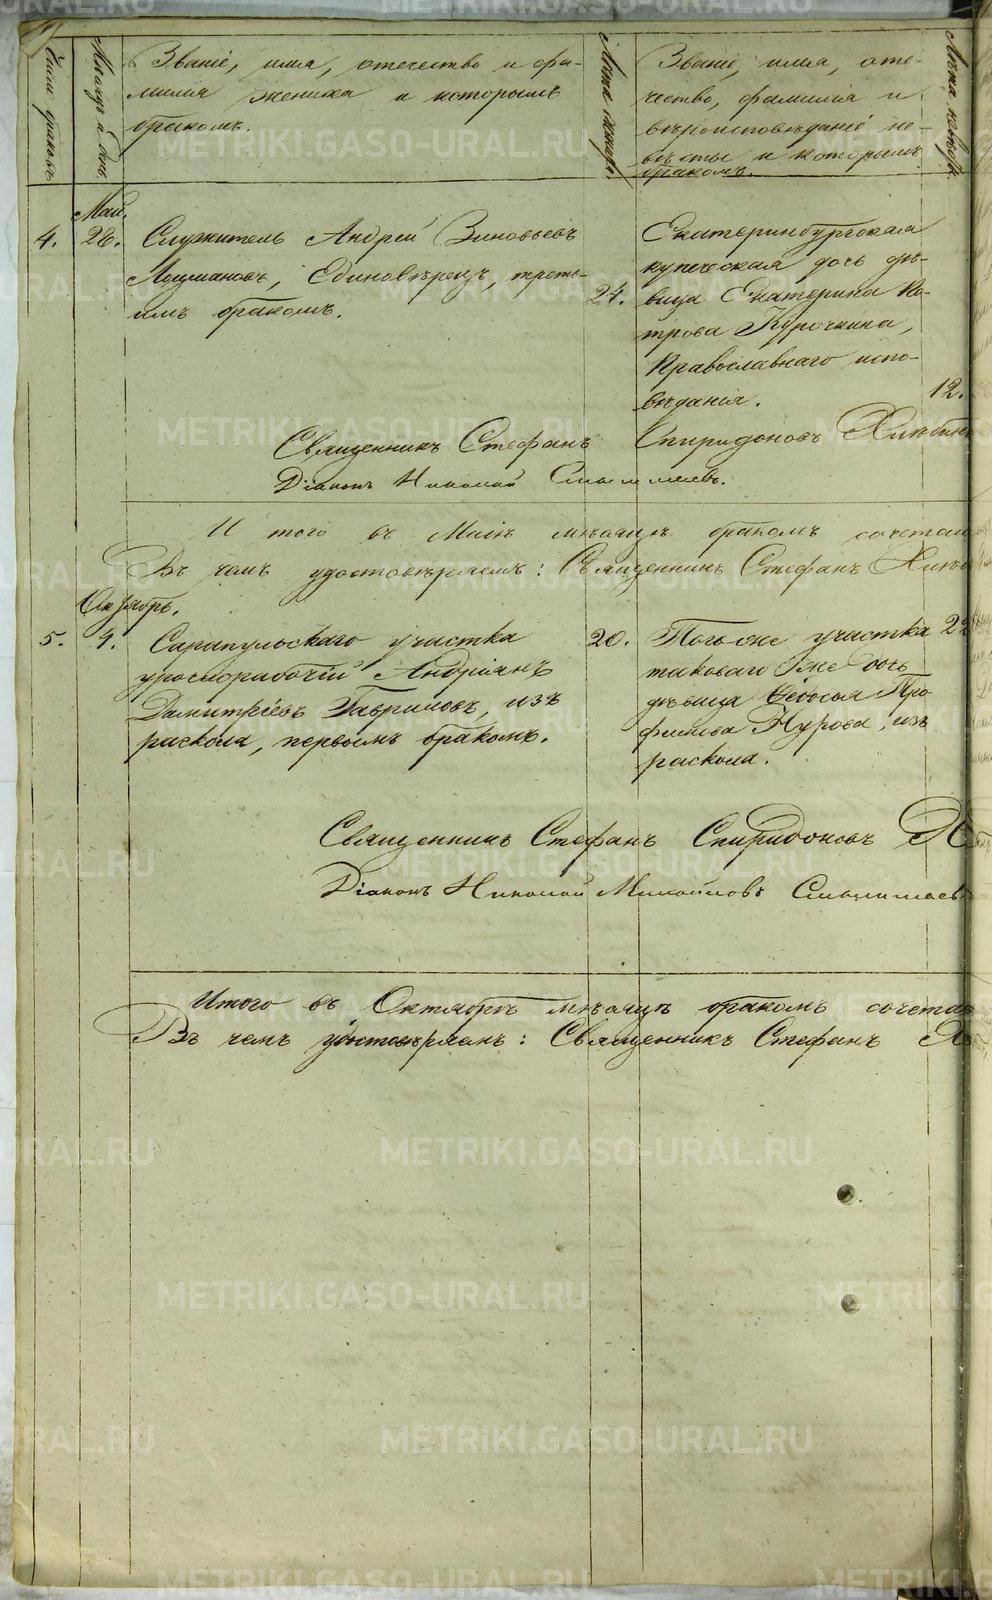 Число браковъ.
Мѣсяцъ и день.
Званіе, имя, отечество и фа-
милія жениха и которымъ
бракомъ.
Лѣта жениха.
Званіе, имя, оте-
чество, фамилія и
вѣроисповѣданіе не-
вѣсты и которымъ
бракомъ.
Лѣта невѣсты.
Май.
4. 26. Служитель Андрей Зиновьевъ
Лоцмановъ, Единовѣрецъ, треть-
имъ бракомъ.
24.
Екатеринбургская
купеческая дочь дѣ-
вица Екатерина Пе-
трова Курочкина,
Православнаго испо-
вѣданія.
12.
Священникъ Стефанъ Спиридоновъ
Діаконъ Николай
Итого въ Маѣ мѣсяцѣ бракомъ
Въ чемъ удостовѣряемъ: Священникъ Стефанъ
Октябрь.
5. 4. Сарапульскаго участка
урочнорабочій Андріянъ
Димитріевъ Гавриловъ, изъ
раскола, первымъ бракомъ.
20.
Того же участка
таковаго же дочь
дѣвица Ѳедосья Про-
фиева Нурова, изъ
раскола.
22
Священникъ Стефанъ Спиридоновъ
Діаконъ Николай Михайловъ
Итого въ Октябрѣ мѣсяцѣ бракомъ
Въ чемъ удостовѣряемъ: Священникъ Стефанъ
METRIKI.GASO-URAL.RU